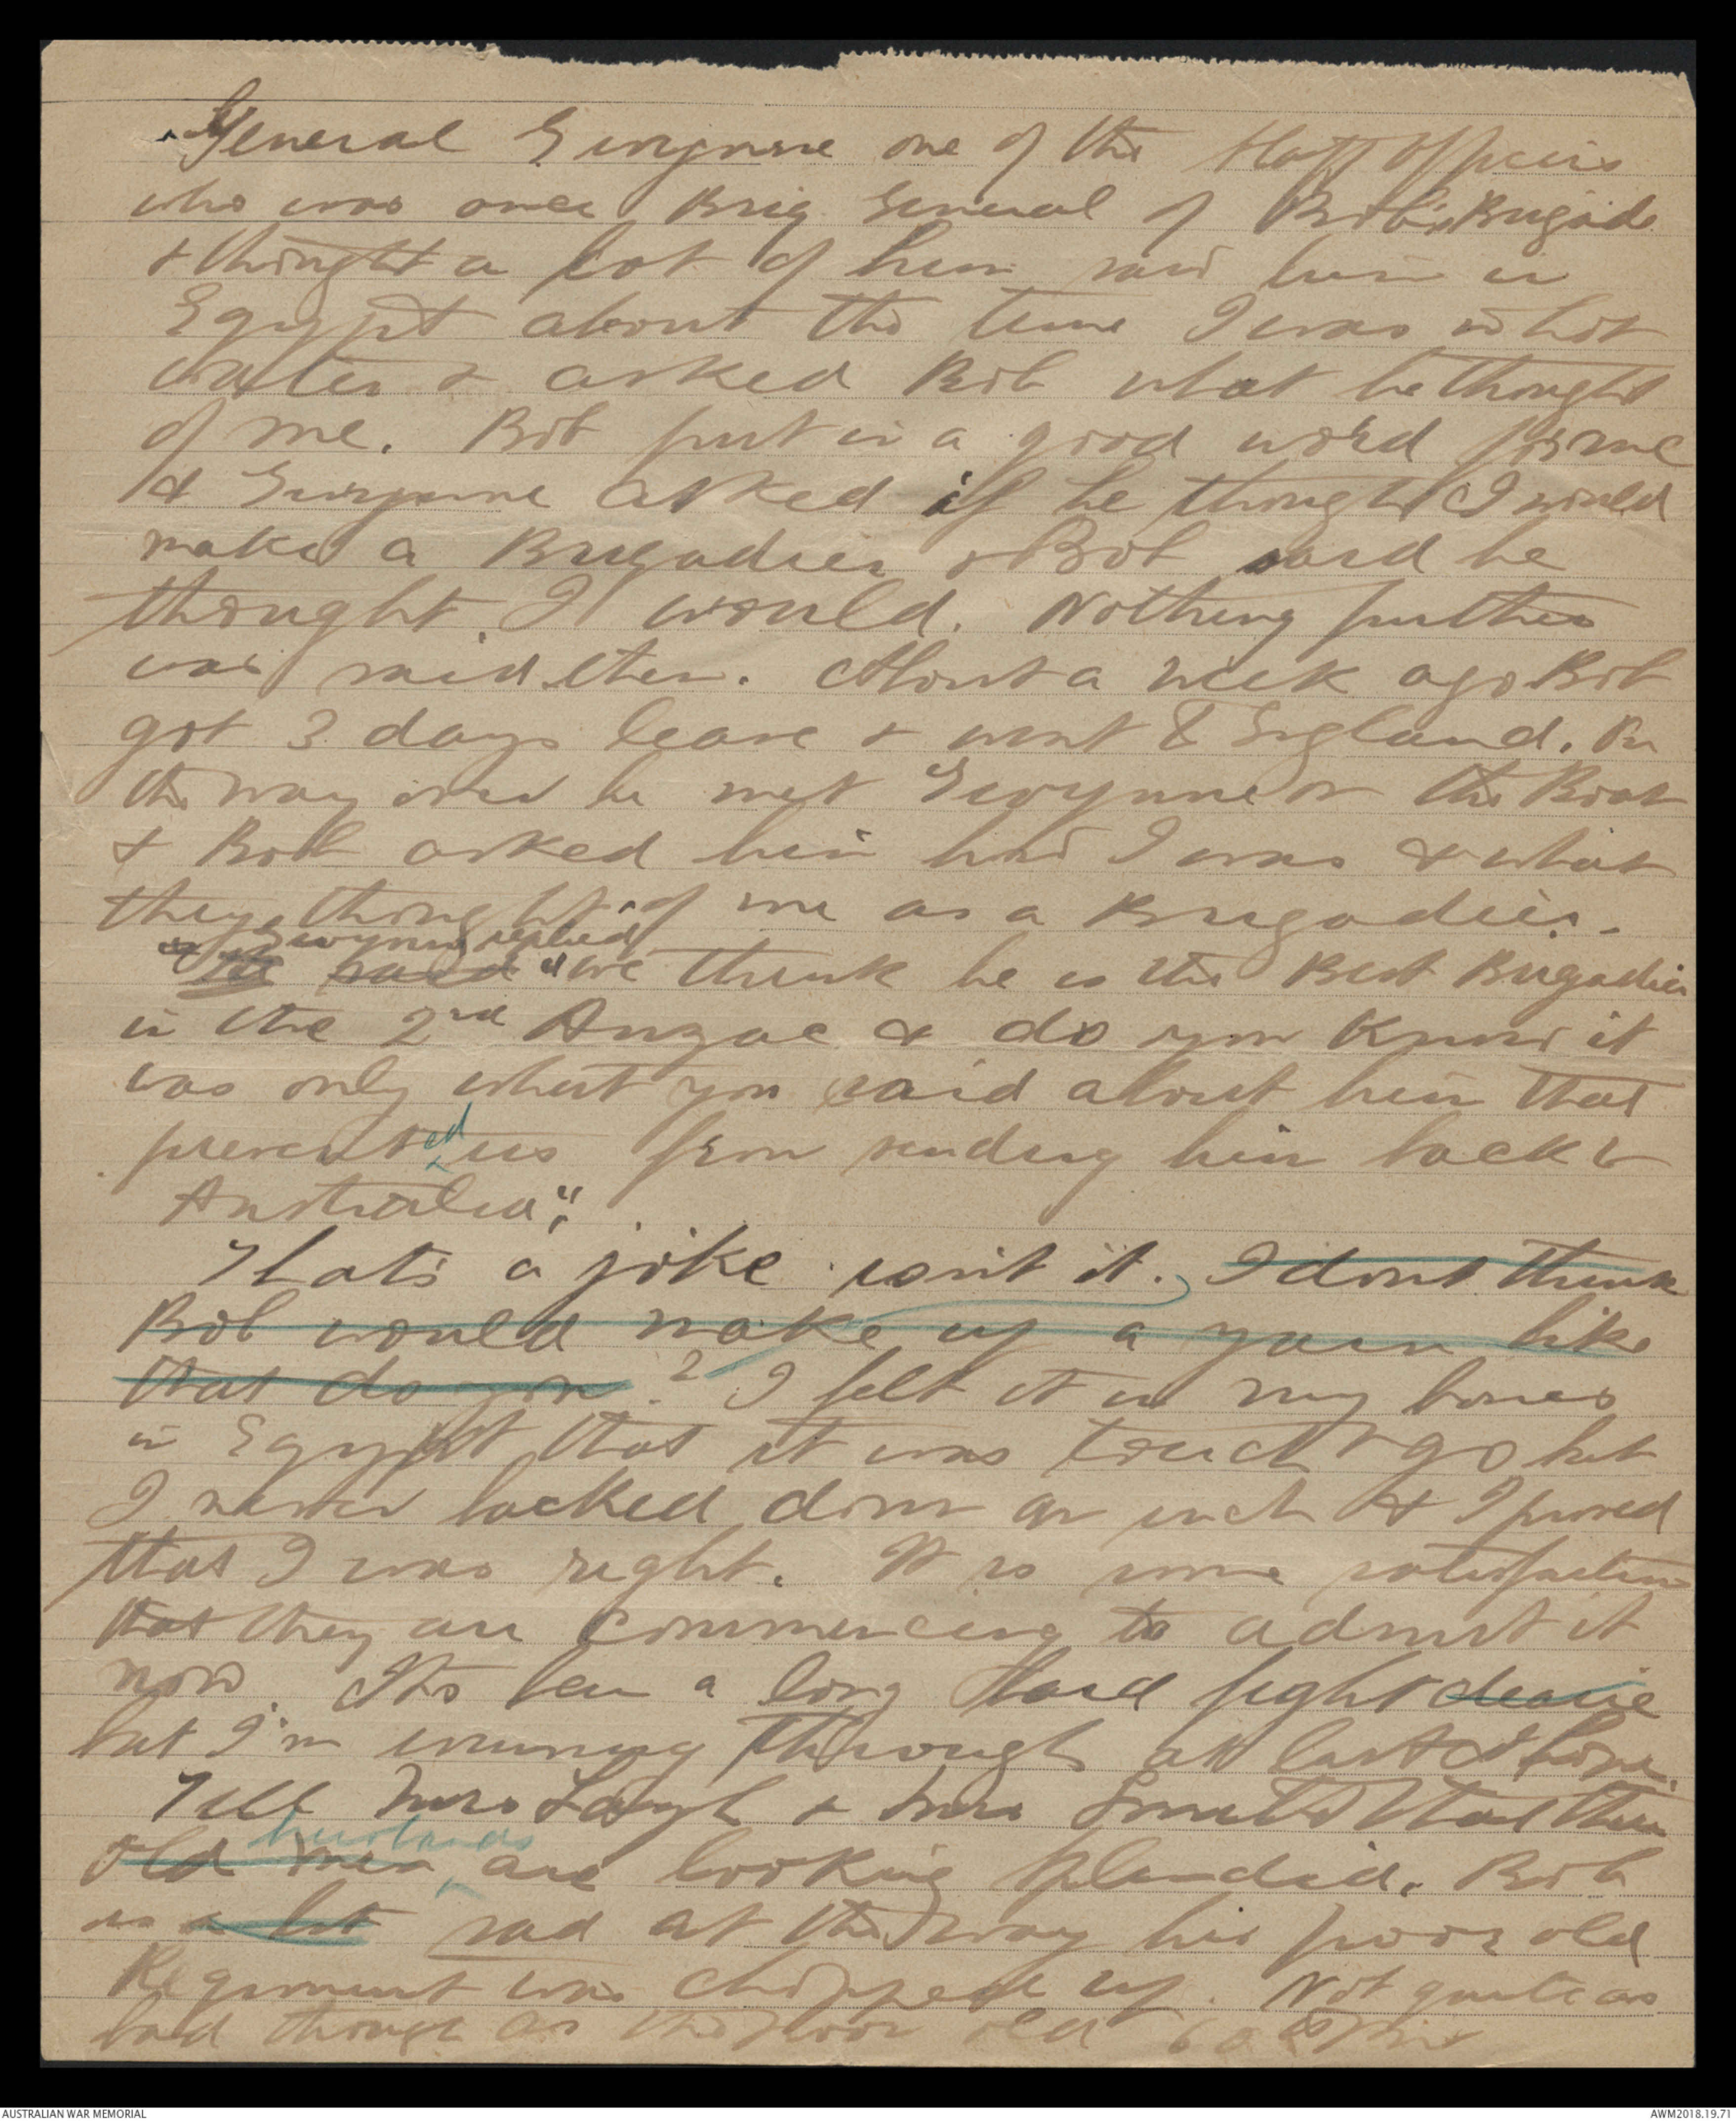 General Gwynne one of the Staff Officers
who was once Brig General of Bob's Brigade
& thought a lot of him saw him in
Egypt about the time I was in hot
water & asked Bob what he thought
of me. Bob put in a good word for me
& Gwynne asked if he thought I would
make a Brigadier & Bob said he
thought I would. Nothing further
was said then. About a week ago Bob
got 3 days leave & went to England. On
the way over he met Gwynne on the Boat
& Bob asked him how I was & what
they thought of me as a Brigadier.
& Gwynne replied
He said "we think he is the Best Brigadier
in the 2nd Anzac & do you know it
was only what you said about him that
prevented us from sending him back to
Australia".
That's a joke isn't it. I dont think
Bob would make up a yarn like
that do you? I felt it in my bones
in Egypt that it was touch & go but
I never backed down an inch & I proved
that I was right. It is some satisfaction
that they are commencing to admit it
now. Its been a long hard fight dearie
but I'm winning through at last I hope.
Tell Mrs Layh & Mrs Smith that their
husbands
old men are looking splendid. Bob
is a bit sad at the way his poor old
Regiment was chopped up. Not quite as
bad though as the poor old 60th